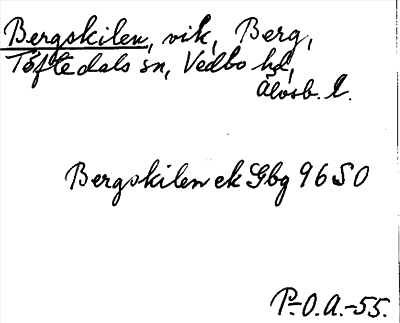 Bergskilen, vik, Berg,
Töftedals sn, Vedbo hd,
Älvsb. l.
Bergskilen ek Gbg 96 SO
P.-O.A.-55.